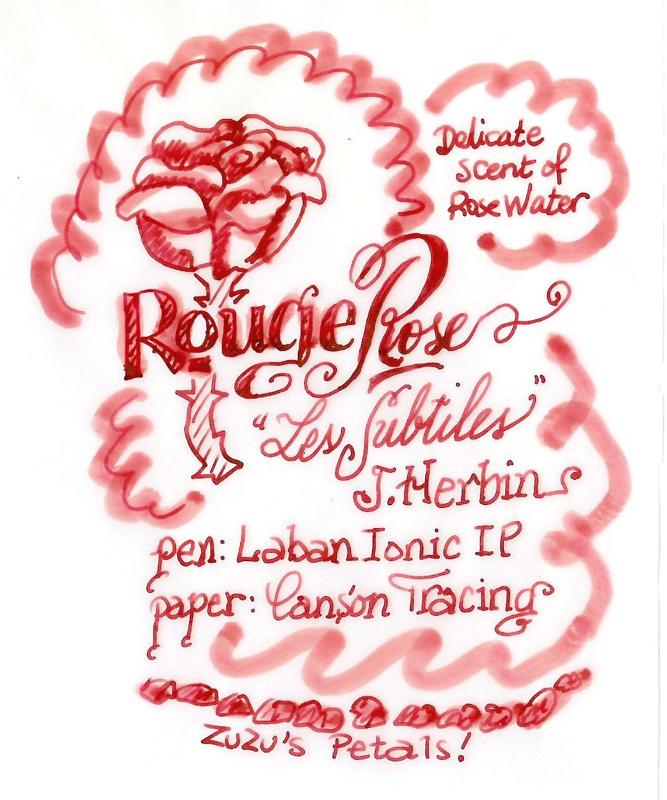 Delicate
scent of
Rose Water
Rouge Rose
"Les Subtiles"
J. Herbin
pen: Laban Ionic IP
paper: Canson Tracing
Zuzu's Petals!